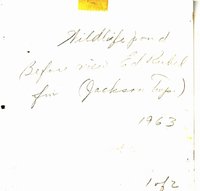 Wildlife pond
Before view Ed
for (Jackson Twp.)
1963
1 of 2